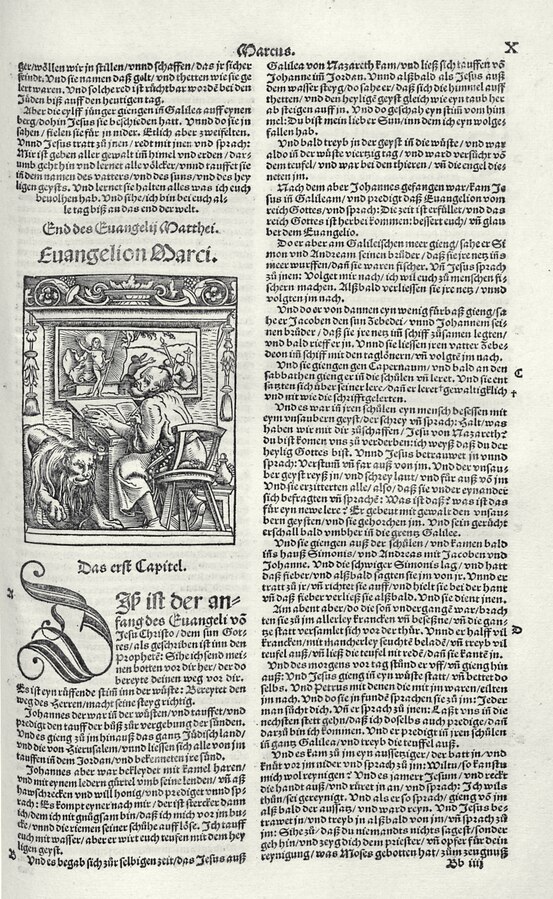 Marcus.
X
ger/wöllen wir jn stillen/vnnd schaffen/das jr sicher
seindt. Vnd sie namen daß golt/vnd thetten wie sie ge
lert waren. Vnd solche red ist rüchtbar wordẽ bei den
Jüden biß auff den heutigen tag.
Aber die eylff jünger giengen in Galilea auff eynen
berg/dohin Jesus sie bescheiden hatt. Vnnd do sie jn
sahen/fielen sie für jn nider. Etlich aber zweifelten.
Vnnd Jesus tratt zu jnen/redt mit jnen vnd sprach:
Mir ist geben aller gewalt in himel vnd erden/darumb
geht hin vnd lernet alle völcker/vnnd tauffet sie
in dem namen des vatters/vnd des suns/vnd des hey
ligen geysts. Vnd lernet sie halten alles was ich euch
bevolhen hab. Vnd sihe/ich bin bei euch al-
le tag biß an das end der welt.
End des Euangelij Matthei.
Euangelion Marci.
Das erst Capitel.
A
Diß ist der an-
fang des Euangeli võ
Jesu Christo/dem sun Got-
tes/als geschriben ist inn den
Prophetẽ: Sihe ich send mei-
nen botten vor dir her/der do
bereyte deinen weg vor dir.
Es ist eyn rüffende stim̃ inn der wüste: Bereytet den
weg des Herren/machet seine steyg richtig.
Johannes der war in der wüsten/vnd tauffet/vnd
prediget den tauff der büß zur vergebung der sünden.
Vnd es gieng zu jm hinauß das gantz Jüdisch land/
vnd die von Hierusalem/vnnd liessen sich alle von jm
tauffen in dem Jordan/vnd bekenneten jre sünd.
Johannes aber war bekleydet mit kamel haren/
vnd mit eynem ledern gürtel vmb seine lenden/vñ aß
hawschrecken vnd will honig/vnd prediget vnnd sp-
rach: Es kompt eyner nach mir/der ist stercker dann
ich/dem ich nit gnügsam bin/daß ich mich vor jm bu-
cke/vnnd die riemen seiner schühe aufflöse. Ich tauff
euch mit wasser/aber er wirt euch teufen mit dem hey
ligen geyst.
B
Vnd es begab sich zur selbigen zeit/das Jesus auß
Galilea von Nazareth kam/vnd ließ sich tauffen võ
Johanne im̃ Jordan. Vnnd alßbald als Jesus auß
dem wasser steyg/do sahe er/daß sich die himmel auff
thetten/vnd den heyligẽ geyst gleich wie eyn taub her
ab steigen auff jn. Vnd do geschah eyn stim̃ von him
mel: Du bist mein lieber Sun/inn dem ich eyn wolge
fallen hab.
Vnd bald treyb jn der geyst in die wüste/vnd war
aldo in der wüste viertzig tag/vnd ward versücht võ
dem teufel/vnd war bei den thieren/vñ die engel die
neten jm.
Nach dem aber Johannes gefangen war/kam Je
sus in Galileam/vnd prediget daß Euangelion vom
reich Gottes/vnd sprach: Die zeit ist erfüllet/vnd das
reich Gottes ist herbei kommen: bessert euch/vñ glau
bet dem Euangelio.
Do er aber am Galileischen meer gieng/sahe er Si
mon vnd Andream seinen brüder/daß sie jre netz ins
meer wurffen/dañ sie waren fischer. Vñ Jesus sprach
zu jnen: Volget mir nach/ich wil euch zu menschen fi
schern machen. Alßbald verliessen sie jre netz/vnnd
volgten jm nach.
Vnd do er von dannen eyn wenig fürbaß gieng/sa
he er Jacoben den sun Zebedei/vnnd Johannem sei-
nen brüder/daß sie jre netz im̃ schiff zusamen legten/
vnd bald rieff er jn. Vnnd sie liessen jren vatter Zebe-
deon im̃ schiff mit den taglönern/vñ volgtẽ jm nach.
C
Vnd sie giengen gen Capernaum/vnd bald an den
sabbathen gieng er in die schülen vñ leret. Vnd sie ent
satzten sich über seiner lere/dañ er leret gewaltigklich
†
vnd nit wie die schrifftgelerten.
Vnd es war in jren schülen eyn mensch besessen mit
eym vnsaubern geyst/der schrey vñ sprach: Halt/was
haben wir mit dir zuschaffen/Jesu von Nazareth?
du bist komen vns zu verderben: ich weyß daß du der
heylig Gottes bist. Vnnd Jesus betrawet jn vnnd
sprach: Verstum̃ vñ far auß von jm. Vnd der vnsau-
ber geyst reyß jn/vnd schrey laut/vnd für auß võ jm
Vnd sie erzitterten alle/also/daß sie vnder eynander
sich befragten vñ sprachẽ: Was ist daß? was ist das
für eyn newe lere? Er gebeut mit gewalt den vnsau-
bern geysten/vnd sie gehorchen jm. Vnd sein gerücht
erschall bald vmbher in die grentz Galilee.
Vnd sie giengen auß der schülen/vnd kamen bald
in̄s hauß Simonis/vnd Andreas mit Jacoben vnd
Johanne. Vnd die schwiger Simonis lag/vnd hatt
daß fieber/vnd alßbald sagten sie jm von jr. Vnnd er
tratt zu jr/vñ richtet sie auff/vnd hielt sie bei der hant
vñ daß fieber verließ sie alßbald. Vnd sie dient jnen.
Am abent aber/do die son̄ vndergangẽ war/brach
ten sie zu jm allerley krancken vñ besessne/vñ die gan-
D
tze statt versamlet sich vor der thür. Vnnd er halff vil
krancken/mit mancherley seuchẽ beladẽ/vñ treyb vil
teufel auß/vñ ließ die teufel nit redẽ/dañ sie kantẽ jn.
Vnd des morgens vor tag stünd er vff/vñ gieng hin
auß: Vnd Jesus gieng in eyn wüste statt/vñ bettet do
selbs. Vnd Petrus mit denen die mit jm waren/eilten
jm nach. Vnd do sie jn funden sprachen sie zu jm: Jeder
man sücht dich. Vñ er sprach zu jnen: Laßt vns in die
nechsten stett gehn/daß ich doselbs auch predige/dañ
darzu bin ich kommen. Vnd er predigt in jren schülen
in gantz Galilea/vnd treyb die teuffel auß.
Vnd es kam zu jm eyn aussetziger/der batt jn/vnd
knüt vor jm nider vnd sprach zu jm: Wiltu/so kanstu
mich wol reynigen? Vnd es jamert Jesum/vnd reckt
die handt auß/vnd rüret jn an/vnd sprach: Ich wils
thün/sei gereynigt. Vnd als er so sprach/gieng võ jm
alß bald der aussatz/vnd ward reyn. Vnd Jesus be-
trawet jn/vnd treyb jn alßbald von jm/vñ sprach zu
jm: Sihe zu/daß du niemandts nichts sagest/sonder
geh hin/vnd zeyg dich dem priester/vñ opfer für dein
reynigung/was Moses gebotten hat/zum zeugnuß
Bb iiij